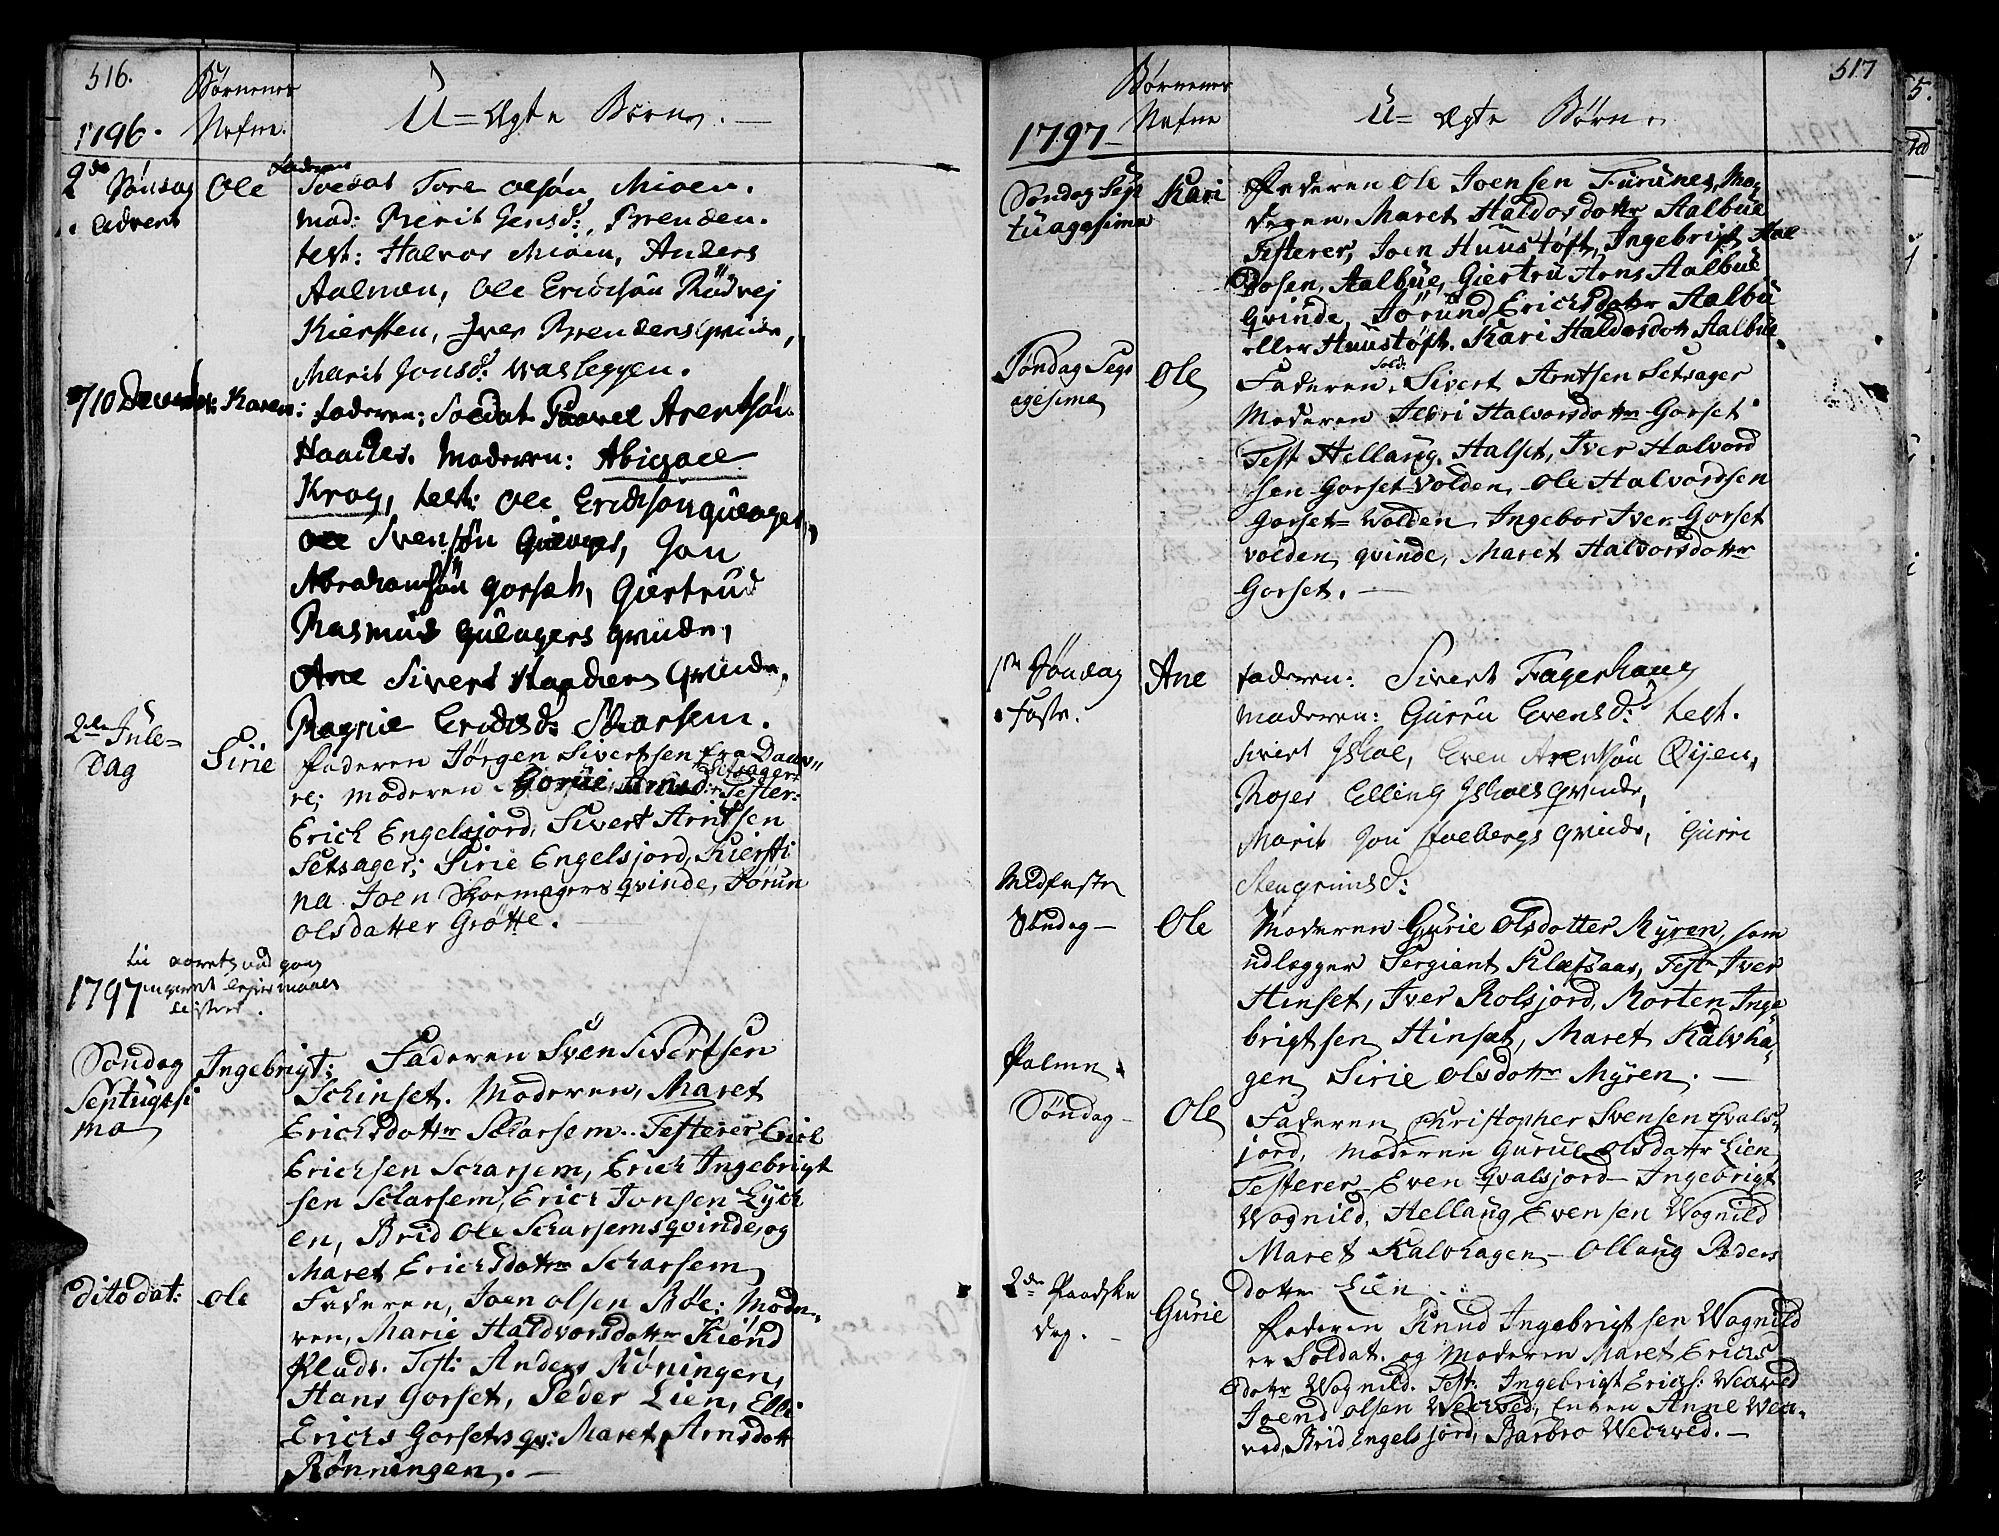 516.
Børnenes
Nafne.
U=ægte Børn.
1796.
2de Sønsag
i Advent
Ole
Faderen
Soldat Tore Olsøn Mioen.
mod: Marit Jensd: Brenden.
test: Halvor Mioen, Anders
Aalmen, Ole Erichsøn Rødvej
Kiersten, Iver Brendens qvinde,
Marit Jonsd: Vasleggen.
10 December
Karen:
faderen: Soldat Paavel Arentsøn
Haacker. Moderen: Abigael
Krog, test: Ole Erichsøn Gulager,
Ole Svensøn Gulager, Jon
Abrahamsøn Gorseth, Giertrud
Rasmus Gulagers qvinde,
Ane Sivert Haackers Qvinde,
Ragnie Erichsd: Skarsem.
2den Jule=
Dag
Sirie
Faderen Jørgen Sivertsen fra Daav„
re; Moderen Gorui Arnsd: Setsager
Tester:
Erich Engelsjord, Sivert Arntsen
Setsager; Sirie Engelsjord, Kiersti
na Joen Skoemagers qvinde, Jørun
Olsdatter Grøtte.
1797
Søndag
Septuagesi
ma
Ingebrigt:
Faderen Sven Sivertsen
Schinset. Moderen, Maret
Erichsdotter Skarsem. Testerer Erich
Erichsen Scharsem, Erich Ingebrigt
sen Skarsem, Erich Jonsen Lych
en, Brid Ole Scharsems qvinde, og
Maret Erichsdotter Scharsem
dito dat:
Ole
Faderen, Joen Olsen Bøe: Mode„
ren, Marie Haldvorsdotter Kiønd
Plads. Test: Anders Røningen,
Hans Gorset, Peder Lien, Elli
Erichs Gorsets qv: Maret Arnsdott
Rønningen.
517
Børnenes
Nafne
U= ægte Børn
1797
Søndag Sep
tuagesima
Kari
Faderen Ole Joensen Furunes, Mo
deren, Maret Haldorsdotter Aalbue
Testerer, Joen Huustøft, Ingebrigt Hal
dosen, Aalbue, Giertru Arns Aalbue
qvinde, Jørund Erichsdotter Aalbu
eller Huustøft. Kari Haldorsdotr Aalbue.
Søndag Sex
agesima
Ole
Faderen, Sold: Sivert Arntsen Setsager
Moderen Ildri Halvorsdotter Gorset
Test Hellaug. Halset, Iver Halvord
sen Gorset=Volden, Ole Halvordsen
Gorset= Volden, Ingebor Iver Gorset
volden qvinde, Maret Halvorsdotter
Gorset.
1ste Søndag
i Faste.
Ane
faderen: Sivert Fagerhaug
moderen: Guru Evensd: test.
Sivert Ishol, Even Arentsøn Øijen,
Rojer Elling Ishoels qvinde,
Marit Jon Stuebergs qvinde, Gurri
Stengrimsd:
Midfaste
Søndag
Ole
Moderen Gurie Olsdotter Myren, som
udlegger Sergiant Klæfsaas, Test. Iver
Hinset, Iver Rolsjord, Morten Inge
brigtsen Hinset, Maret Kalvha„
gen Sirie Olsdotter Myren.
Palme
Søndag
Ole
Faderen Christopher Svensen Qvals„
jord, Moderen Gurue Olsdatter Lien
Testerer Even Qvalsjord Ingebrigt
Wognild, Hellaug Evensen Wognild
Maret Kalvhagen Ollaug Peders
dotter Lien
2den Paaske
dag.
Gurie
Faderen Knud Ingebrigtsen Wognild
er Soldat. og Moderen Maret Erichs
dotr Wognild. Test. Ingebrigt Erichs: Weaved
Joend Olsen Weaved, Anne Wea„
ved, Brid Engelsjord, Barbro Weaved.